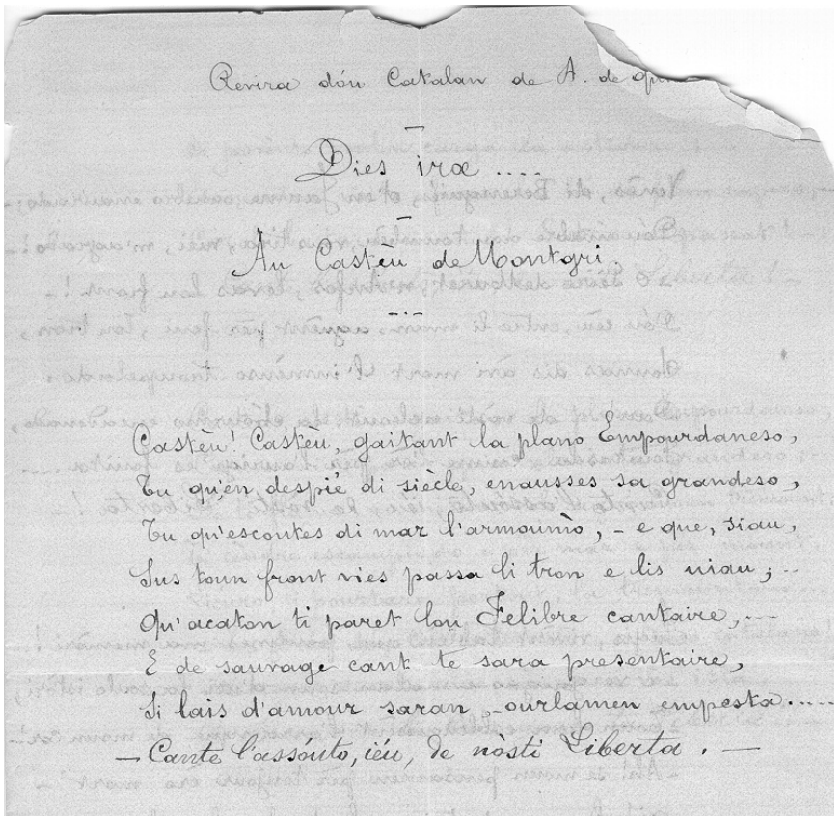 Revira dóu Catalan de A. de
Dies iræ ....
Au Castèu de Montgri.
Castèu! Castèu, gaitant la plano Empourdaneso,
Tu qu'en despié di siècle, enausses sa grandeso,
Tu qu'escoutes di mar l'armounìo, - e que, siau,
Sus toun front vies passa li tron e lis uiau; ...
Qu'acaton ti paret lou Felibre cantaire, ...
E de sauvage cant te sara presentaire,
Si lais d'amour saran, ourlamen empesta.....
— Cante l'assóuto, iéu, de nòsti Liberta. —